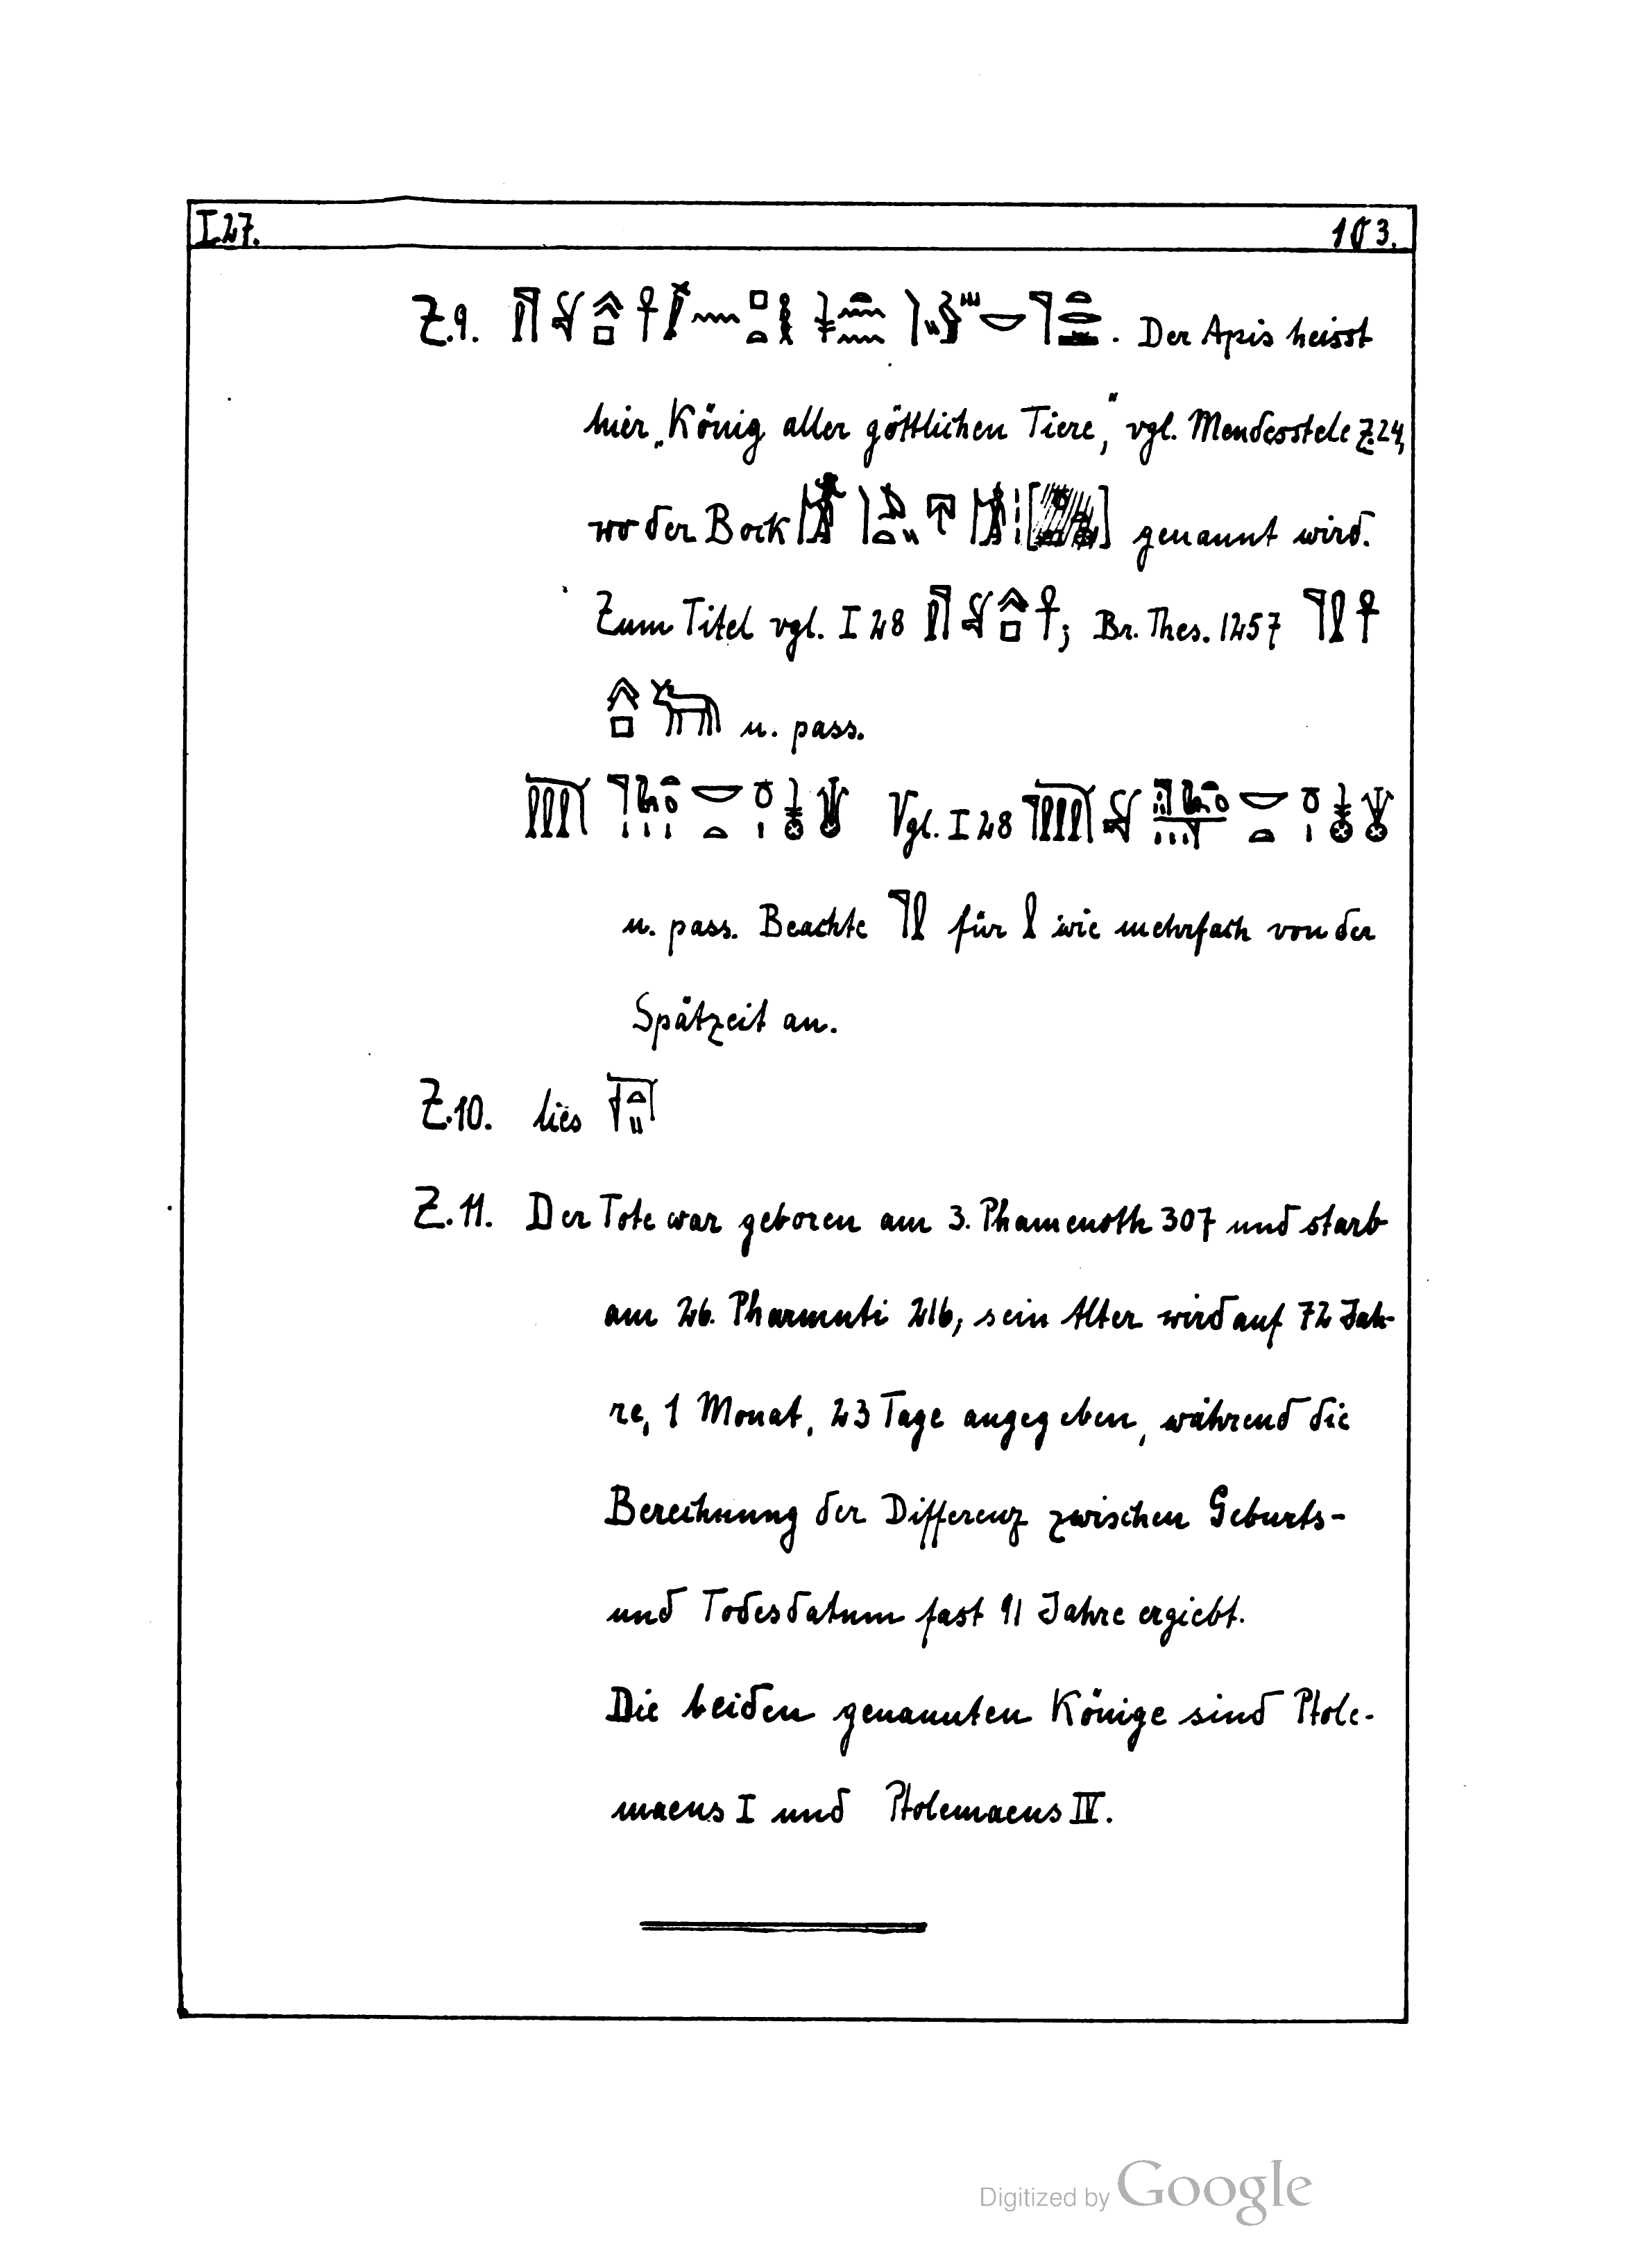 I.27. 103.
Z.9. . Der Apis heisst
hier „König aller göttlichen Tiere,“ vgl. Mendesstele Z.24,
wo der Bock [ ] genannt wird.
Zum Titel vgl. I 28 ; Br. Thes. 1257
u. pass.
Vgl. I 28
u. pass. Beachte für wie mehrfach von der
Spätzeit an.
Z.10. lies
Z.11. Der Tote war geboren am 3. Phamenoth 307 und starb
am 26. Pharmuti 216, sein Alter wird auf 72 Jah-
re, 1 Monat, 23 Tage angegeben, während die
Berechnung der Differenz zwischen Geburts-
und Todesdatum fast 91 Jahre ergiebt.
Die beiden genannten Könige sind Ptole-
maeus I und Ptolemaeus IV.
Digitized by Google